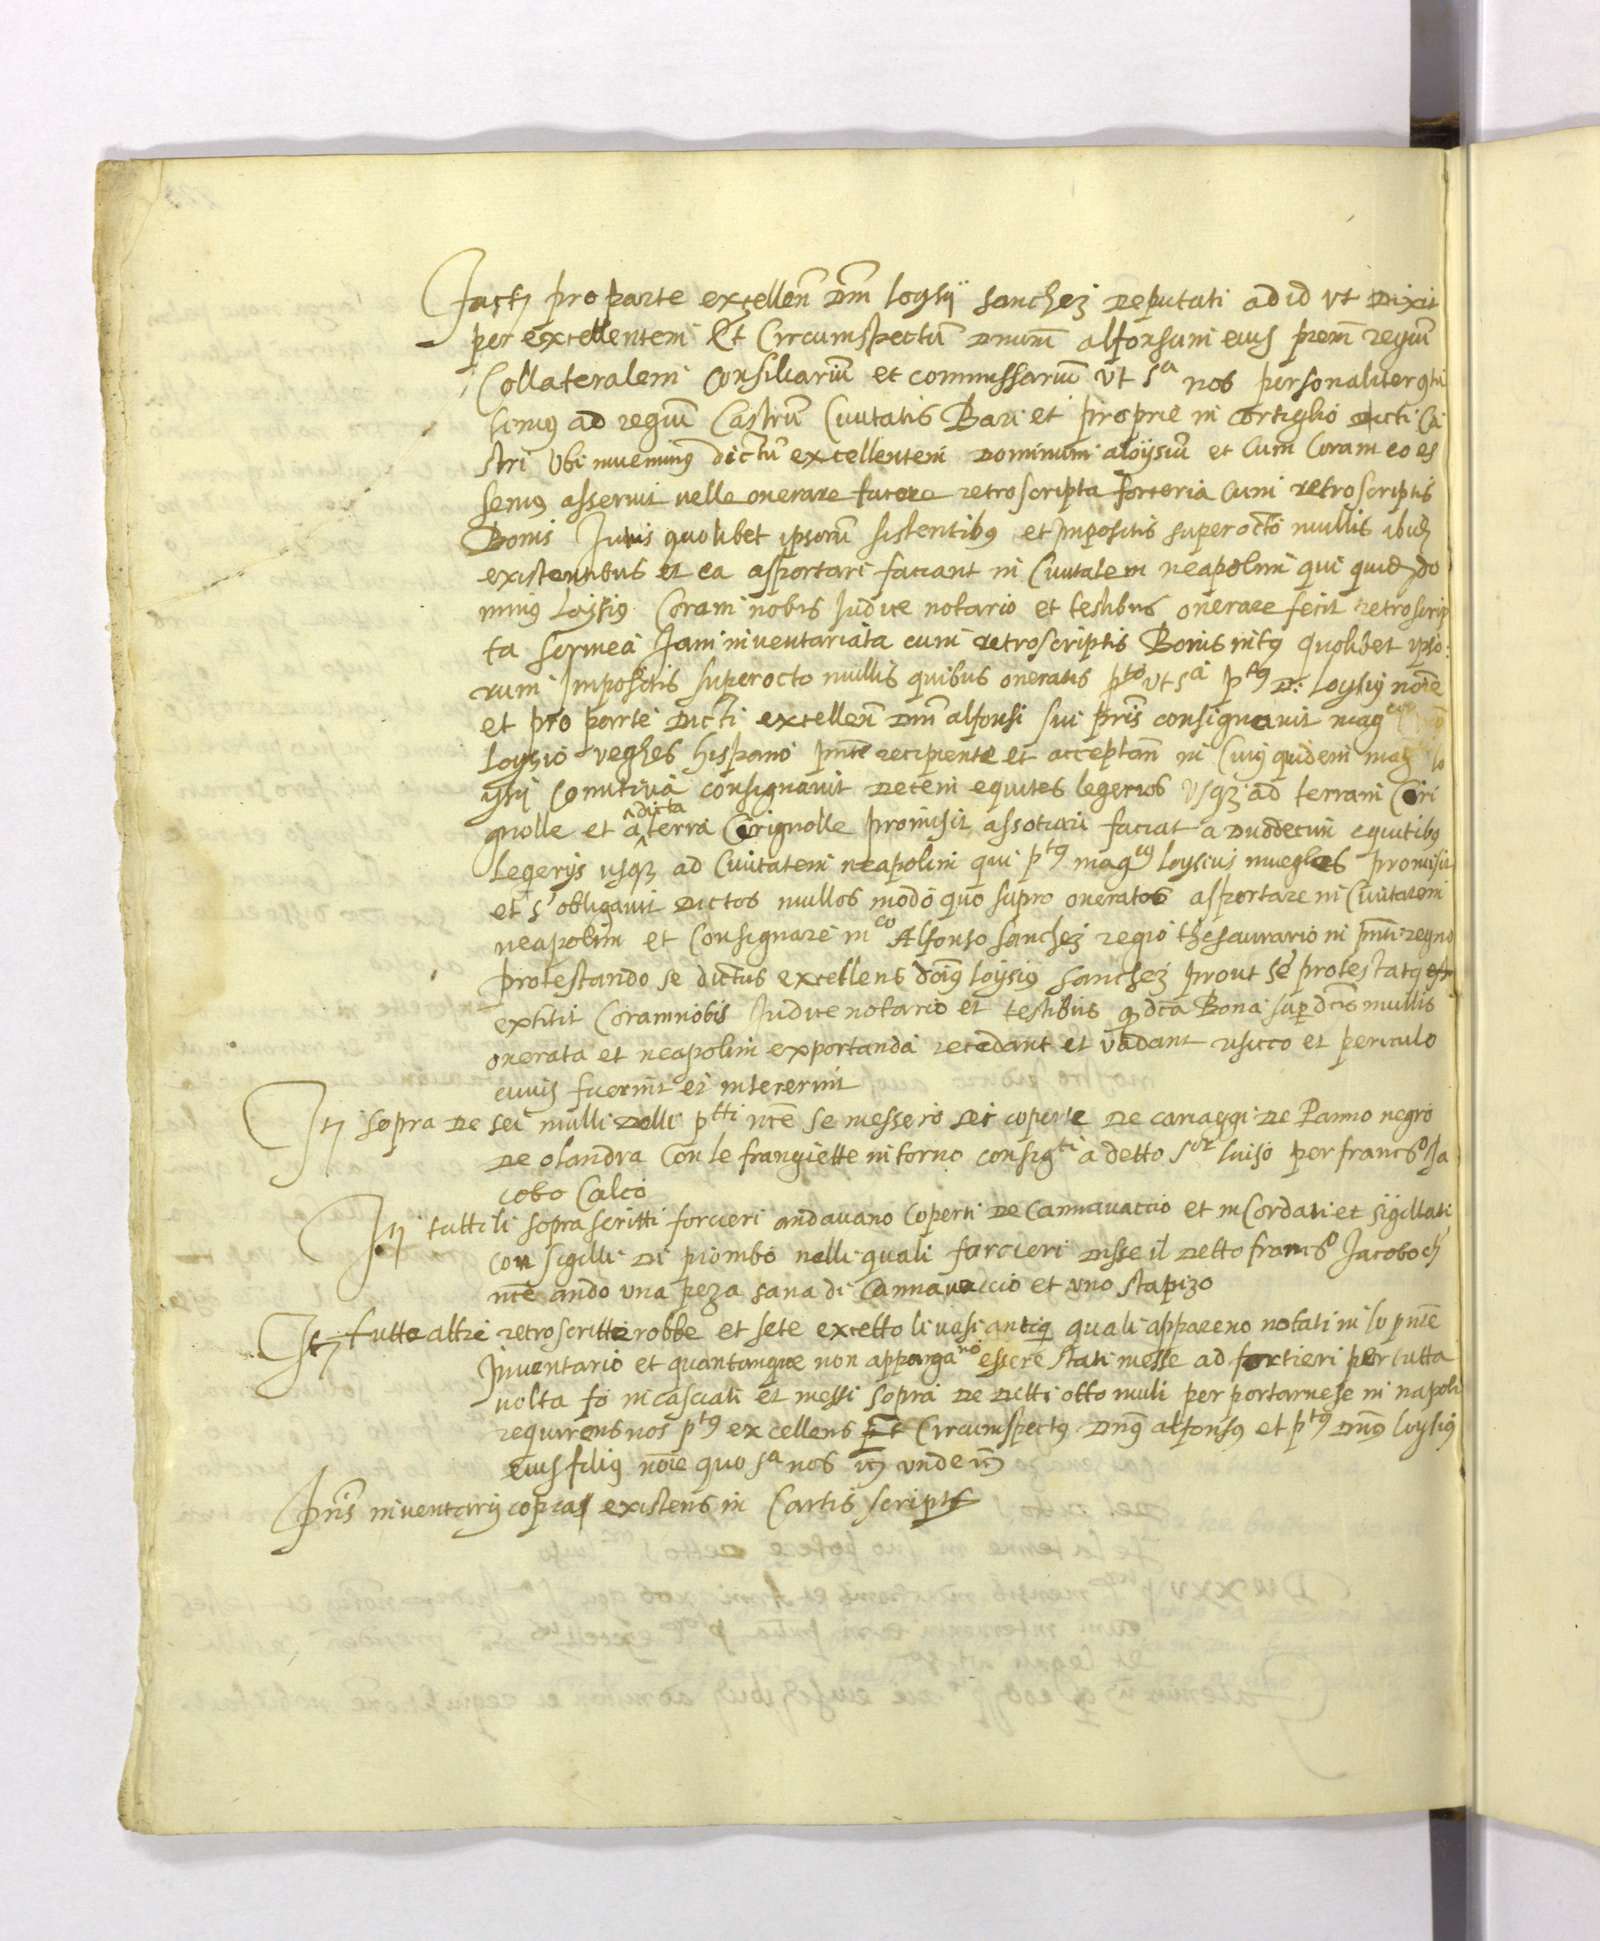 fact[is] pro parte excellen dni loysii sanchez deputati ad id ut dixit
per excellentem Et Circumspectu dnum alfonsum eius prem regiu
Collateralem Consiliariu et commissariu ut sa nos personaliter
simus ad regiu Castru Civitatis Bari et proprie in cortiglio dicti Ca
stri Ubi invenimus dictu excellentem Dominum aloysiu et Cum Coram eo es
semus asseruit velle onerare facere retroscripta forceria Cum retroscriptis
Bonis Intus quolibet ipsoru sistentibus et Impositis super octo mullis ibid
existentibus et ea asportari faciant in Civitatem neapolim qui quid do
minus Loysius Coram nobis Iudice notario et testibus onerare fecit retroscrip
ta Iam inventariata cum retroscriptis Bonis intus quolibet ipso:
rum Impositis super octo mullis quibus oneratis pto ut sa ptus D: Loysius noie
et pro parte Dicti excellen dni alfonsi sui pris consignavit mag
Loysio veghes hispano pnte recipiente et acceptan in Cuius quidem mag lo
ysii Comitiva consignavit decem equites legerios usq ad terram Ciri
gnolle et a dicta terra Cirignolle promisit assotiari faciat a duodecim equitibus
Legeriis usq ad Civitatem neapolim qui ptus magcus Loysius mueghes promisit
et s obligavit dictos mullos modo quo supra oneratos asportare in Civitatem
neapolim et Consignare mco Alfonso sanchez regio thesaurario in pnti regno
protestando se dictus excellens doius loysius sanchez prout se protestatus
extitit Coram nobis Iudice notario et testibus q dca Bona sup dcis mullis
onerata et neapolim exportanda recedant et vadant risicco et periculo
cuius fuerint et intererint
It sopra de sei mulli delli ptti nce se messero sei coperte de cariaggi de Panno negro
de olandra Con le frangiette intorno consigti a detto sor luiso per francso Ja
cobo Calco
It tutti li soprascritti forcieri andavano Coperti de Cannavaccio et in Cordati et sigillati
con sigilli di piombo nelli quali farcieri disse il detto francso Jacobo ch
nce ando una peza sana di Cannavaccio et uno stapizo
It tutte altre retroscritte robbe et sete excetto li vasi antiq quali appareno notati in lo pnte
Inventario et quantunque non apparano essere stati messe ad fortieri per tutta
volta fo incasciati et messi sopra de ditti otto muli per portarnese in napoli
requirens nos ptus excellens et Circumspectus Dnus alfonsus et ptus Dnus loysius
eius filius noie quo sa nos un unde un
Pris inventarii copia existens in Cartis script